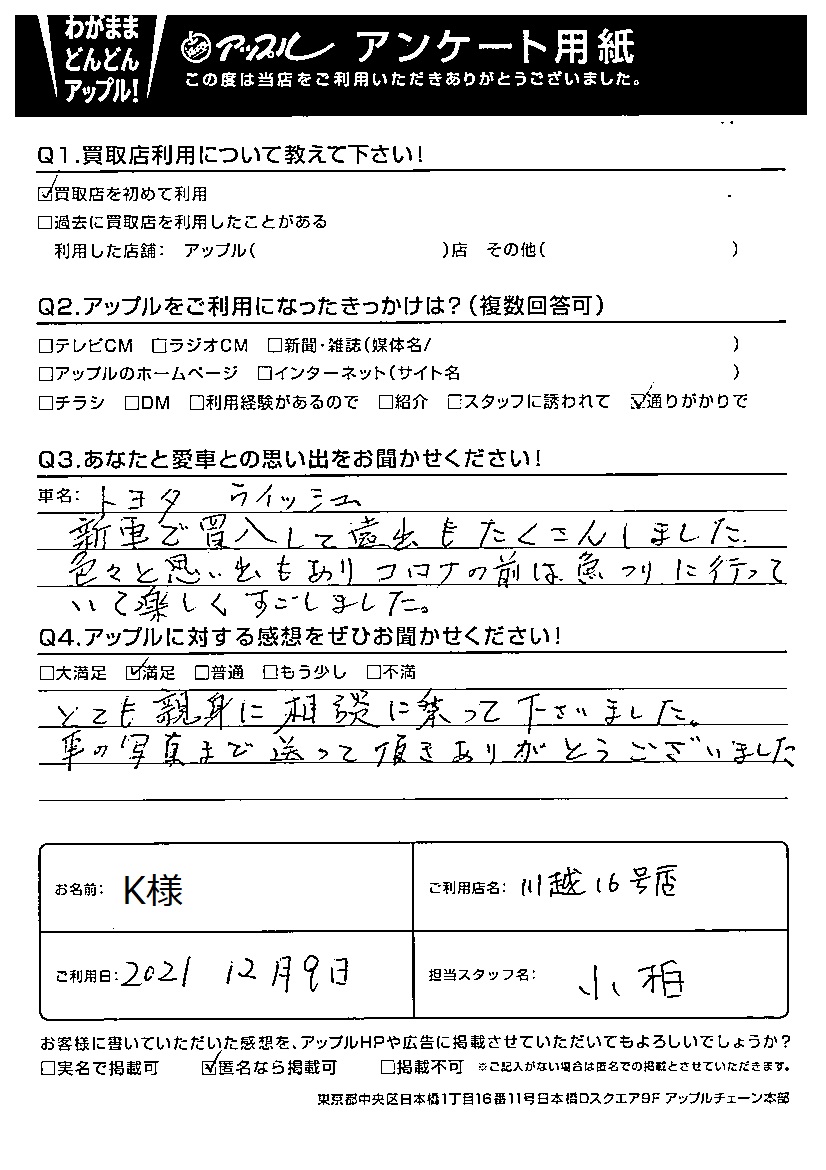 わがまま
どんどん
アップル!
アップル アンケート用紙
この度は当店をご利用いただきありがとうございました。
Q1.買取店利用について教えて下さい!
☑買取店を初めて利用
□過去に買取店を利用したことがある
利用した店舗: アップル( )店 その他( )
Q2.アップルをご利用になったきっかけは?(複数回答可)
□テレビCM □ラジオCM □新聞・雑誌(媒体名/ )
□アップルのホームページ □インターネット(サイト名 )
□チラシ □DM □利用経験があるので □紹介 □スタッフに誘われて ☑通りがかりで
Q3.あなたと愛車との思い出をお聞かせください!
車名: トヨタ ウィッシュ
新車で買入して遠出もたくさんしました.
色々と思い出もありコロナの前は魚つりに行って
いて楽しくすごしました。
Q4.アップルに対する感想をぜひお聞かせください!
□大満足 ☑満足 □普通 □もう少し □不満
とても親身に相談に乗って下さいました。
車の写真まで送って頂きありがとうございました
お名前: K様
ご利用店名: 川越16号店
ご利用日: 2021 12月9日
担当スタッフ名: 小柏
お客様に書いていただいた感想を、アップルHPや広告に掲載させていただいてもよろしいでしょうか?
□実名で掲載可 ☑匿名なら掲載可 □掲載不可 ※ご記入がない場合は匿名での掲載とさせていただきます。
東京都中央区日本橋1丁目16番11号日本橋Dスクエア9F アップルチェーン本部